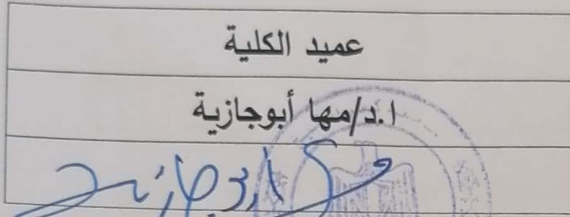 عميد الكلية
ا.د/مها أبوجازية